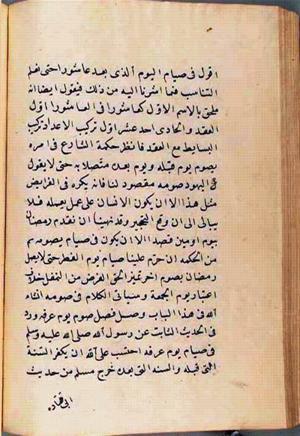 اقول في صيام اليوم الذي بعد عاشورا حتى نعلم
التناسب فيما اشرنا اليه من ذلك فيقول ايضا انه
ملحق بالاسم الاول كما عاشورا في العاشورا اول
العقد والحادي احد عشر اول تركيب الاعداد تركيب
البسايط مع العقد فانظر حكمة الشارع في امره
بصوم يوم قبله ويوم بعده متصلا به حتى لا يقول
اليهود صومه مقصود لنا فانه يكره في الفرايض
مثل هذا الا ان يكون الانسان على عمل يعمله فلا
يبالي الى ان وقع التحجير وقد نهينا ان نقدم رمضان
بيوم او يومين قصدا الا ان يكون في صيام يصومه ثم
من الحكمة ان حرم علينا صيام يوم الفطر حتى لا يصل
رمضان بصوم اخر تميز الحق الفرض من النفل خلاف
اعتبار يوم الجمعة وسياتي الكلام في صومه اثناء
الله في هذا الباب وصل فصل صوم يوم عرفه ورد
في الحديث الثابت عن رسول الله صلى الله عليه وسلم
في صيام يوم عرفه احتسب على الله ان يكفر السنة
التي قبله والسنه التي بعده خرج مسلم من حديث
ابي قتاده